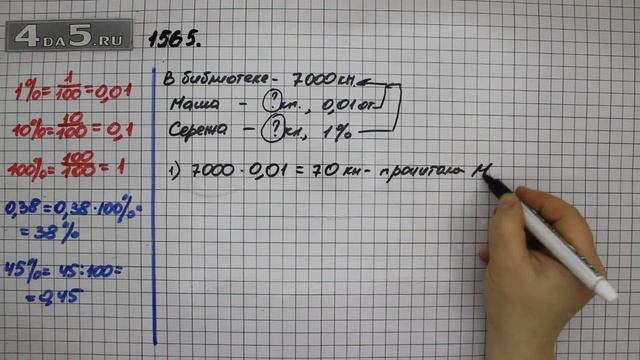 4DA5.RU
1565.
1% = 1/100 = 0,01
10% = 10/100 = 0,1
100% = 100/100 = 1
0,38 = 0,38 · 100% =
= 38%
45% = 45 : 100 =
= 0,45
В библиотеке - 7000 кн.
Маша - ? кн., 0,01 от
Сережа - ? кн, 1%
1) 7000 · 0,01 = 70 кн - прочитала М